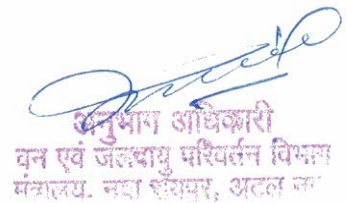 अनुभाग अधिकारी
वन एवं जलवायु परिवर्तन विभाग
मंत्रालय, नवा रायपुर, अटल